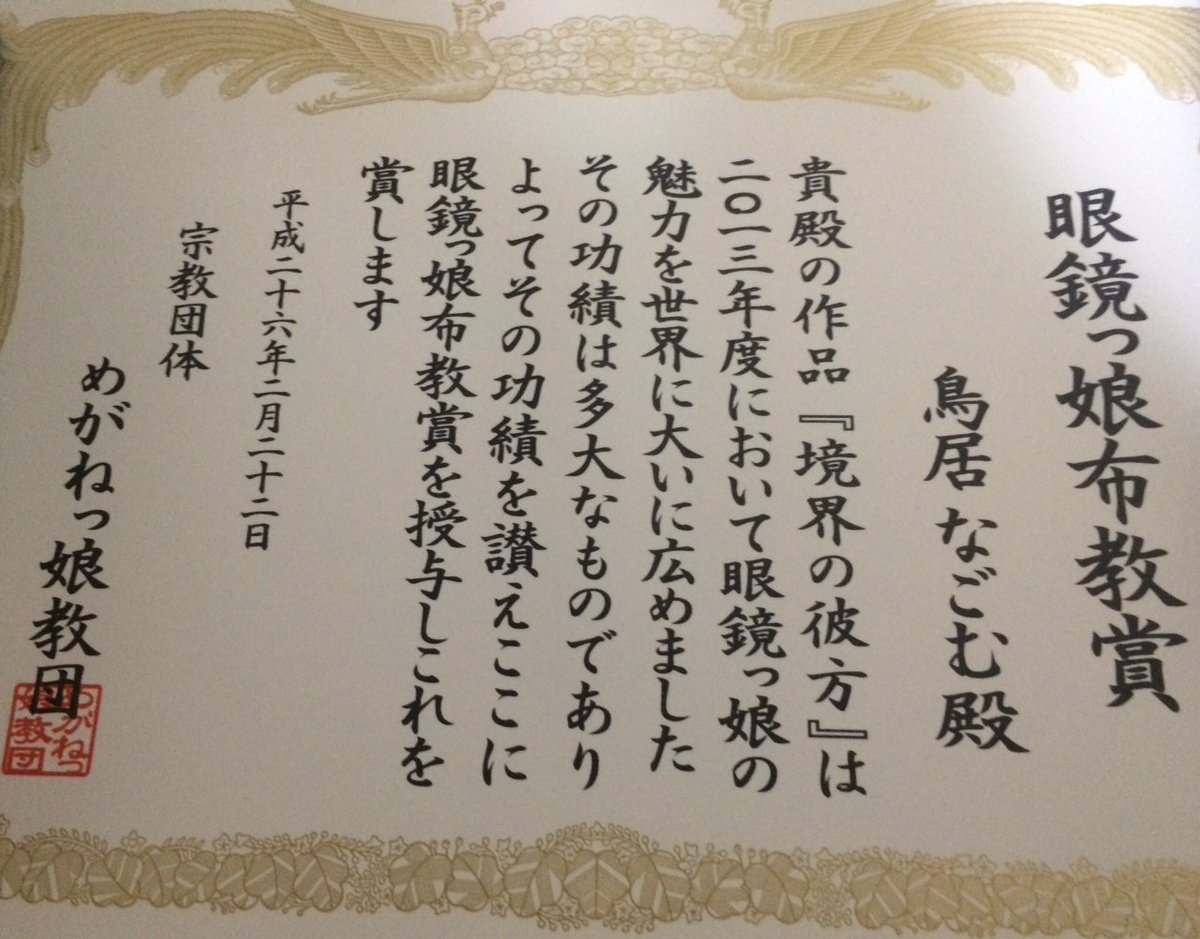 眼鏡っ娘布教賞
鳥居なごむ殿
貴殿の作品『境界の彼方』は
二〇一三年度において眼鏡っ娘の
魅力を世界に大いに広めました
その功績は多大なものであり
よってその功績を讃えここに
眼鏡っ娘布教賞を授与しこれを
賞します
平成二十六年二月二十二日
宗教団体
めがねっ娘教団
めがねっ
娘教団